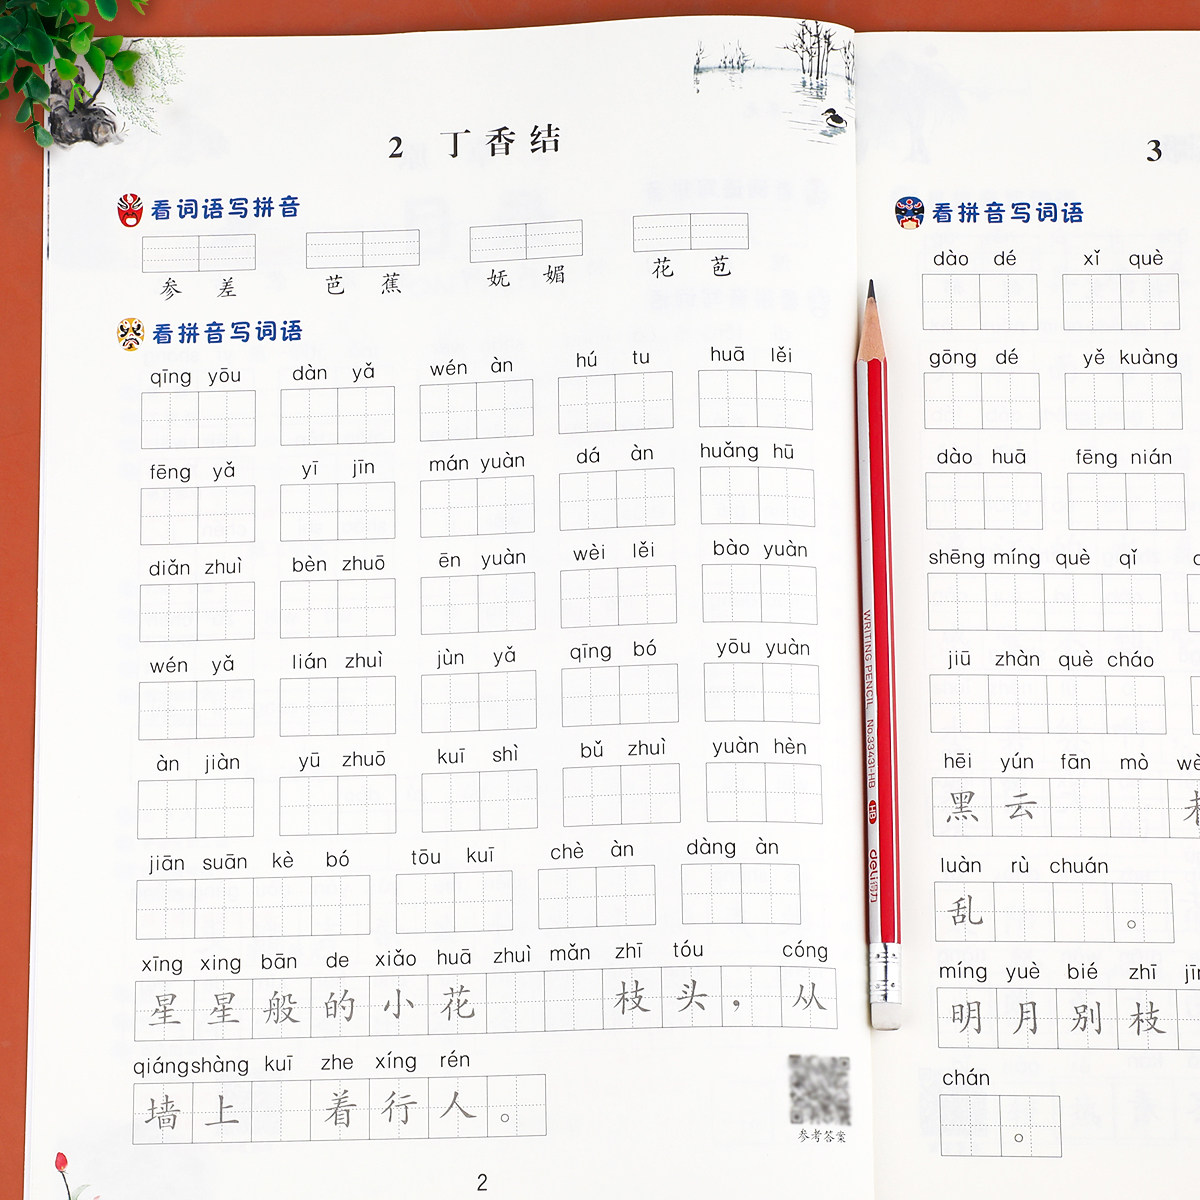 2 丁香结
看词语写拼音
参差 芭蕉 妩媚 花苞
看拼音写词语
qīng yōu dàn yǎ wén àn hú tu huā lěi
fēng yǎ yī jīn mán yuàn dá àn huǎng hū
diǎn zhuì bèn zhuō ēn yuàn wèi lěi bào yuàn
wén yǎ lián zhuì jùn yǎ qīng bó yōu yuàn
àn jiàn yū zhuō kuī shì bǔ zhuì yuàn hèn
jiān suān kè bó tōu kuī chè àn dàng àn
xīng xing bān de xiǎo huā zhuì mǎn zhī tóu cóng
星星般的小花 枝头，从
qiáng shàng kuī zhe xíng rén
墙上 着行人。
参考答案
2
3
看拼音写词语
dào dé xǐ què
gōng dé yě kuàng
dào huā fēng nián
shēng míng què qǐ
jiū zhàn què cháo
hēi yún fān mò
黑云
luàn rù chuán
乱 。
míng yuè bié zhī
明月别枝
chán
。
WRITING PENCIL No.33431-HB HB deli得力